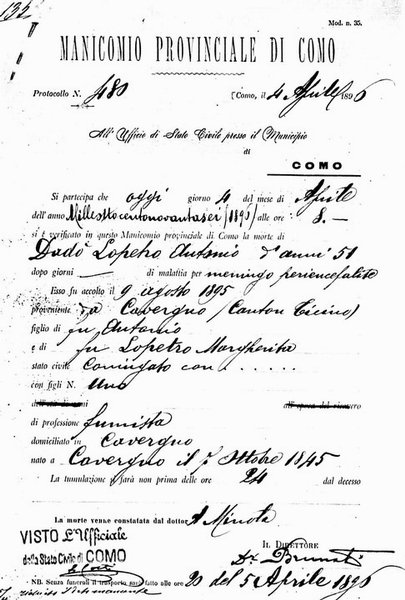 132
Mod. n. 35.
MANICOMIO PROVINCIALE DI COMO
Protocollo N. 480
Como, il 4 Aprile 1896
All' Ufficio di Stato Civile presso il Municipio
di
COMO
Si partecipa che oggi giorno 4 del mese di Aprile
dell'anno Milleottocentonovantasei (1896) alle ore 8.—
si è verificato in questo Manicomio provinciale di Como la morte di
Dadò Lopetro Antonio d'anni 51
dopo giorni — di malattia per meningo periencefalite
Esso fu accolto il 9 agosto 1895
proveniente da Cavergno (Canton Ticino)
figlio di fu Antonio
e di fu Lopetro Margherita
stato civile Coniugato con . . . . . .
con figli N. Uno
di professione fumista
domiciliato in Cavergno
nato a Cavergno il Ottobre 1845
La tumulazione si farà non prima delle ore 24 dal decesso
La morte venne constatata dal dottor A Minola
IL DIRETTORE
VISTO L'Ufficiale
dello Stato Civile di COMO
NB. Senza funerali il trasporto sarà fatto alle ore 20 del 5 Aprile 1896